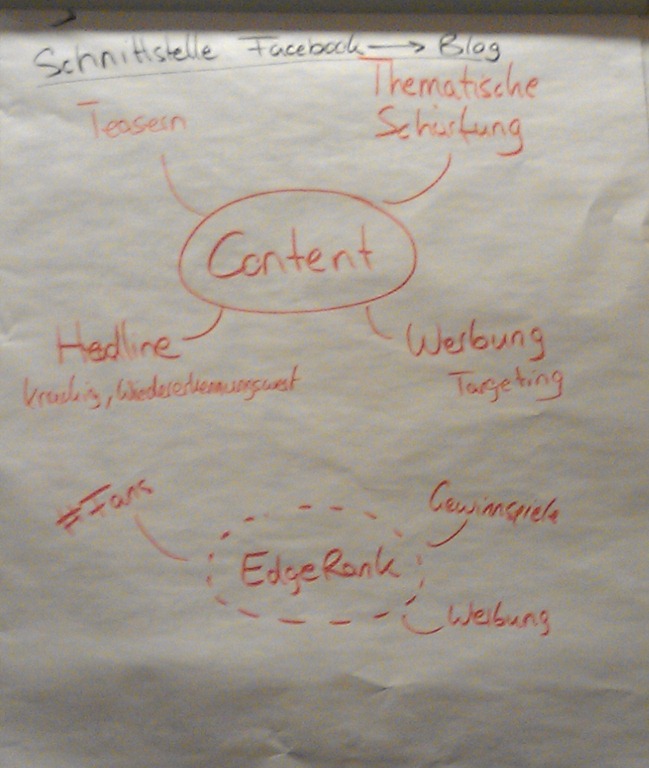 Schnittstelle Facebook → Blog
Teasern
Thematische
Schärfung
Content
Hedline
knackig, Wiedererkennungswert
Werbung
Targeting
#Fans
Gewinnspiele
EdgeRank
Werbung